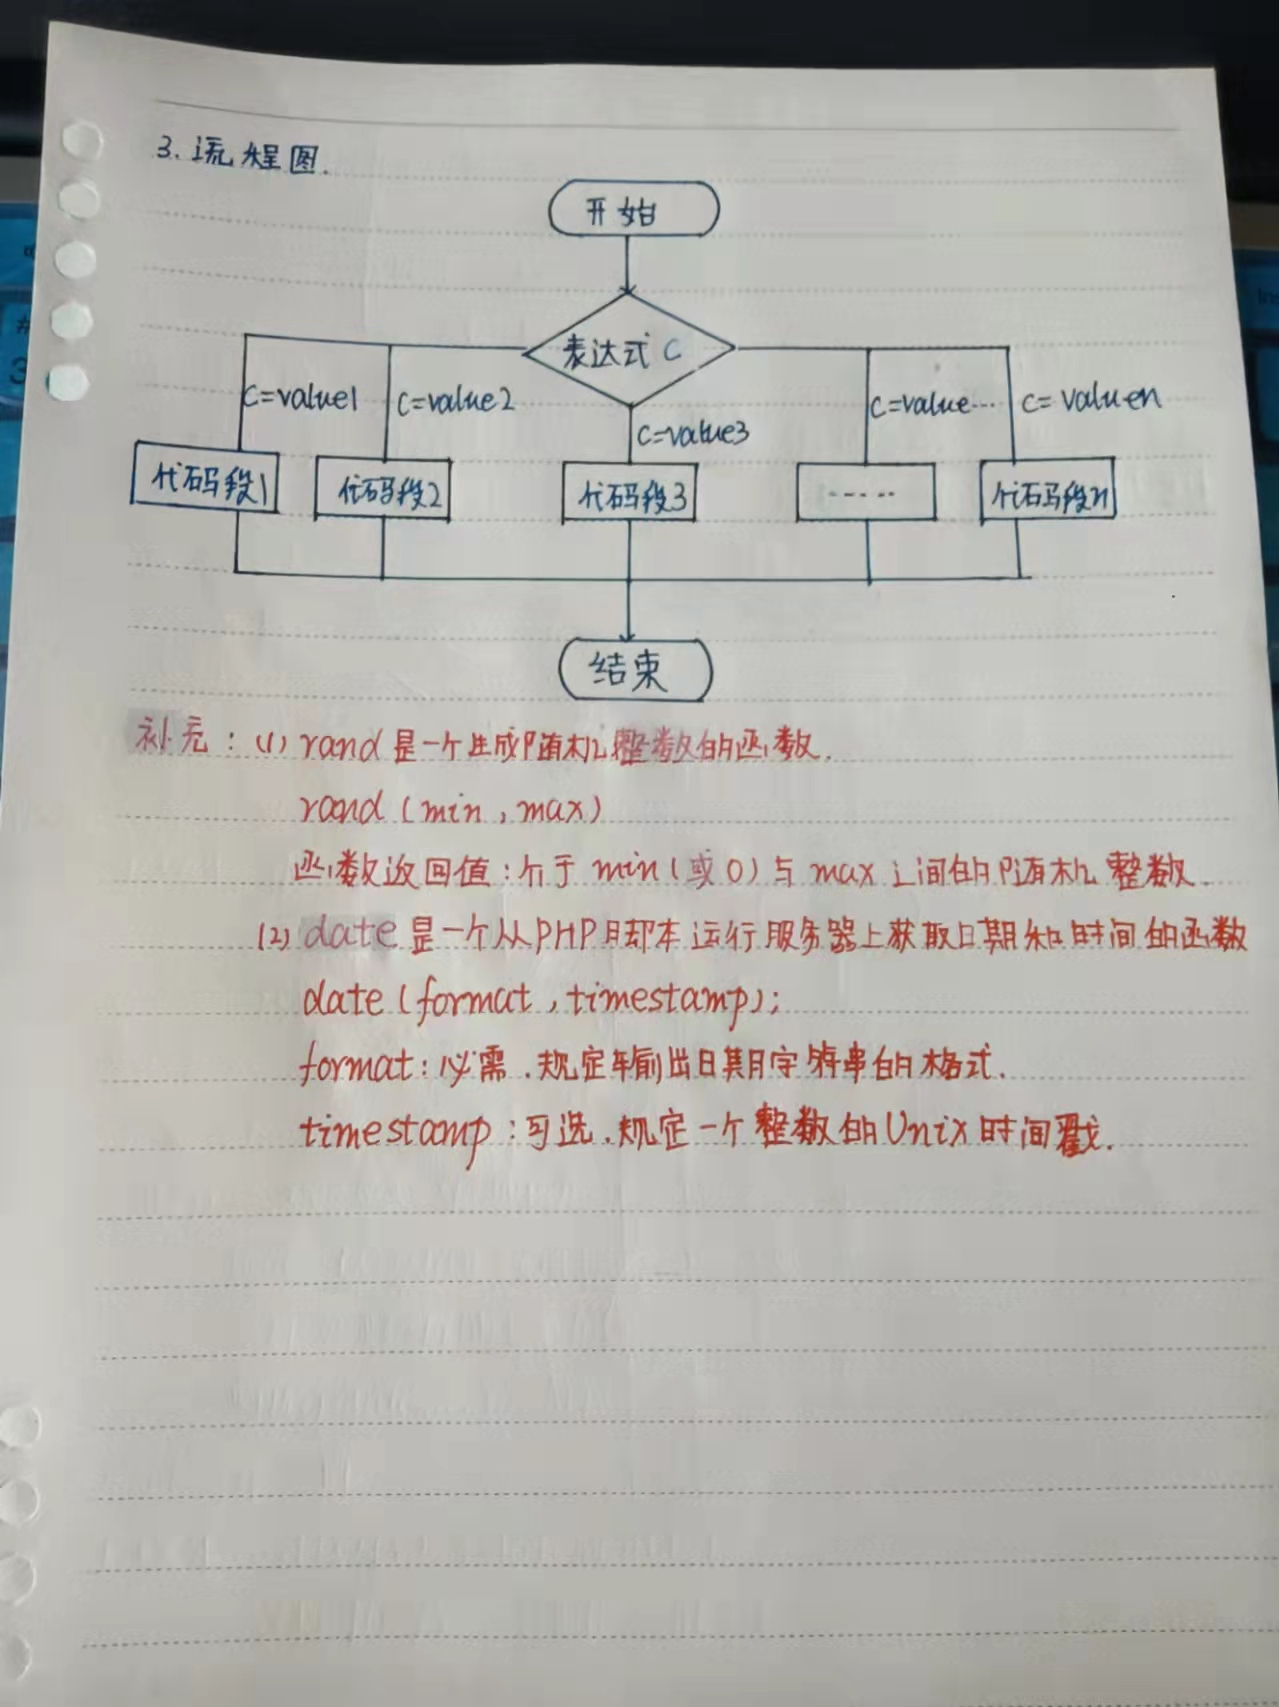 3. 流程图.
开始
表达式 C
C=value1
C=value2
C=value3
C=value...
C=valuen
代码段1
代码段2
代码段3
.....
代码段n
结束
补充：(1) rand 是一个生成随机整数的函数.
rand (min , max)
函数返回值：介于 min (或 0) 与 max 之间的随机整数.
(2) date 是一个从PHP脚本运行服务器上获取日期和时间的函数
date (format , timestamp);
format：必需.规定输出日期字符串的格式.
timestamp：可选.规定一个整数的Unix时间戳.